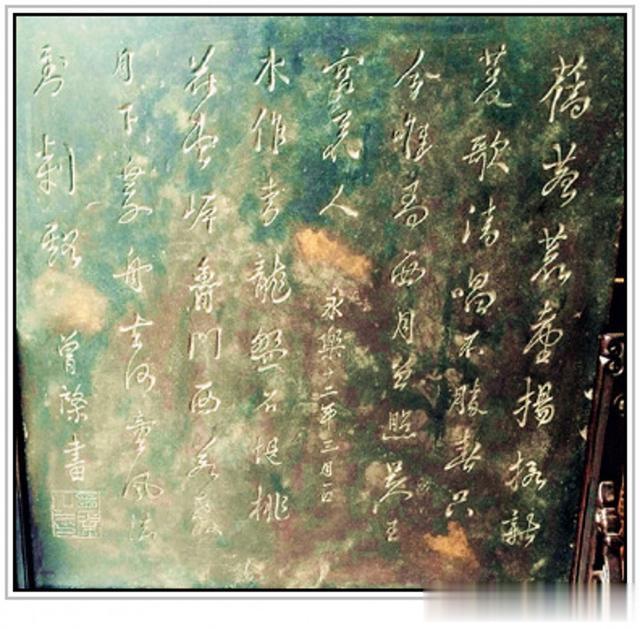 舊苑荒臺揚柳新
菱歌清唱不勝春只
今惟有西月曾照吳王
宮裏人
永樂十二年三月
水作青龍盤石堤桃
花夾岸魯門西若教
月下乘舟去何啻風流
到剡溪
曾棨書